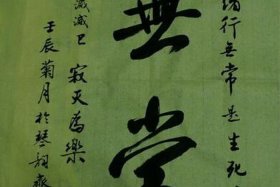 諸行无常是生死
無常
滅滅已 寂灭為樂
壬辰菊月於琴韵齋